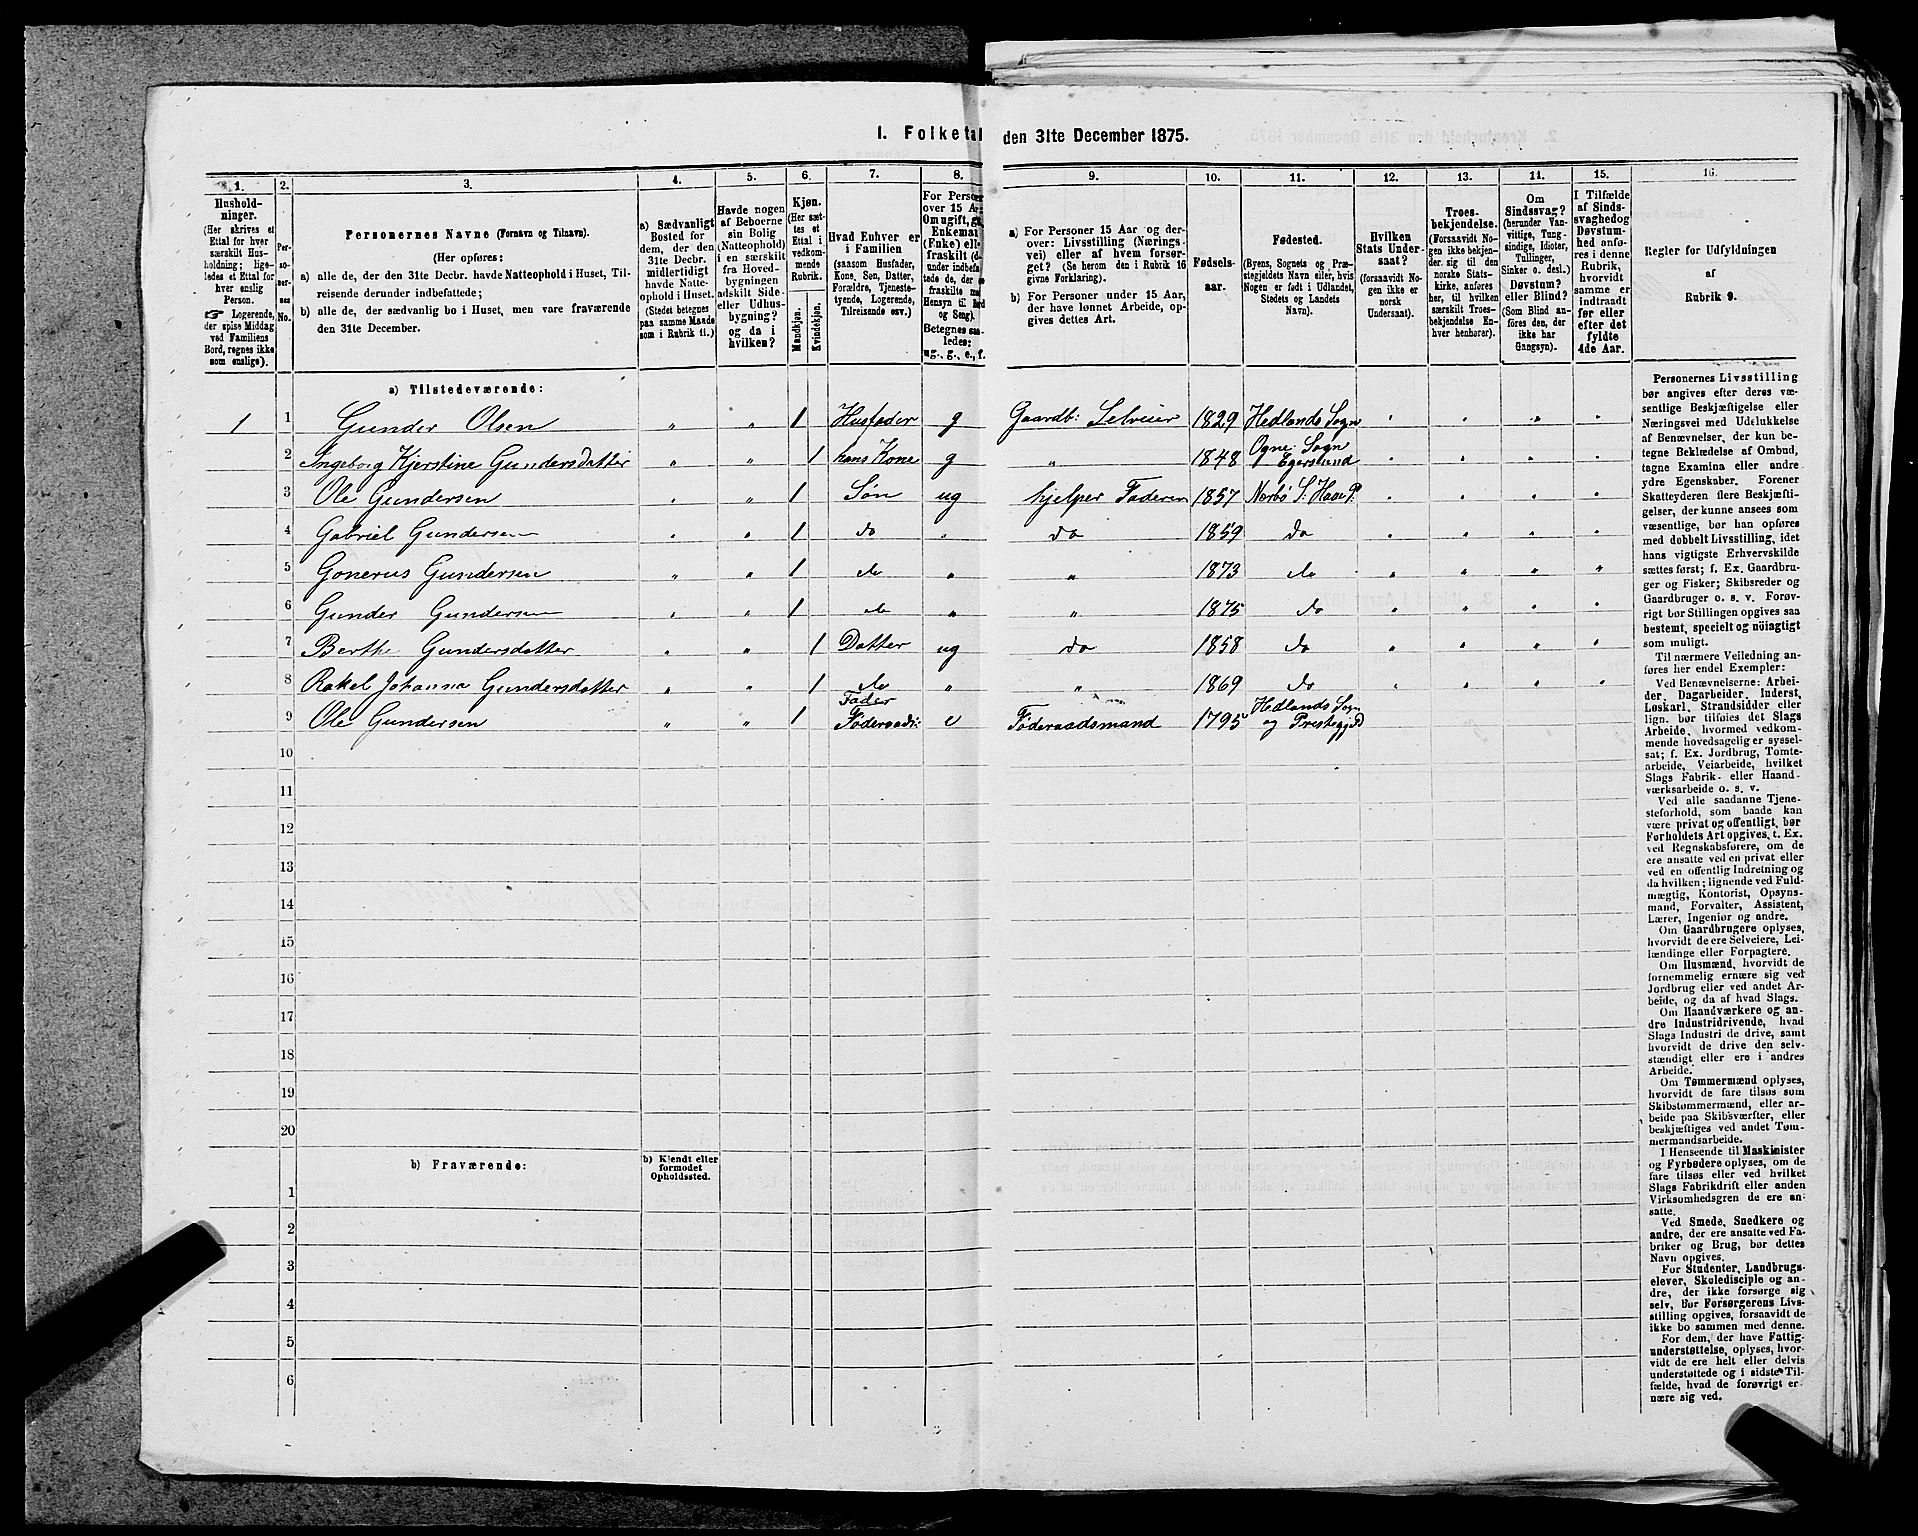 1. Folketal den 31te December 1875.
1. 2. 3. 4. 5. 6. 7. 8. 9. 10. 11. 12. 13. 14. 15. 16.
Hushold-
ninger.
(Her skrives et
Ettal for hver
særskilt Hus-
holdning; lige-
ledes et Ettal for
hver enslig
Person.
☞ Logerende,
der spise Middag
ved Familiens
Bord, regnes ikke
som enslige).
Per-
so-
ner-
nes
No.
Personernes Navne (Fornavn og Tilnavn).
(Her opføres:
a) alle de, der den 31te Decbr. havde Natteophold i Huset, Til-
reisende derunder indbefattede;
b) alle de, der sædvanlig bo i Huset, men vare fraværende
den 31te December.
a) Sædvanligt
Bosted for
dem, der den
31te Decbr.
midlertidigt
havde Natte-
ophold i Huset.
(Stedet betegnes
paa samme Maade
som i Rubrik 11.)
Havde nogen
af Beboerne
sin Bolig
(Natteophold)
i en særskilt
fra Hoved-
bygningen
adskilt Side-
eller Udhus-
bygning?
og da i
hvilken?
Kjøn.
(Her sæt-
tes et
Ettal i
vedkom-
mende
Rubrik.
Mandkjøn.
Kvindekjøn.
Hvad Enhver er
i Familien
(saasom Husfader,
Kone, Søn, Datter,
Forældre, Tjeneste-
tyende, Logerende,
Tilreisende osv.)
For Personer
over 15 Aar
Om ugift, gift,
Enkemand
(Enke) eller
fraskilt
Betegnes saa-
ledes:
ug., g., e., f.
a) For Personer 15 Aar og der-
over: Livsstilling (Nærings-
vei) eller af hvem forsør-
get? (Se herom den i Rubrik 16
givne Forklaring).
b) For Personer under 15 Aar,
der have lønnet Arbeide, op-
gives dettes Art.
Fødsels-
aar.
Fødested.
(Byens, Sognets og Præ-
stegjeldets Navn eller, hvis
Nogen er født i Udlandet,
Stedets og Landets
Navn).
Hvilken
Stats Under-
saat?
(forsaavidt No-
gen ikke er
norsk
Undersaat).
Troes-
bekjendelse.
(Forsaavidt No-
gen ikke bekjen-
der sig til den
norske Stats-
kirke, anføres
her, til hvilken
særskilt Troes-
bekjendelse En-
hver henhører).
Om
Sindssvag?
(herunder Van-
vittige, Tung-
sindige, Idioter,
Tullinger,
Sinker o. desl.)
Døvstum?
eller Blind?
(Som Blind an-
føres den, der
ikke har
Gangsyn).
I Tilfælde
af Sinds-
svaghed og
Døvstum-
hed anfø-
res i denne
Rubrik,
hvorvidt
samme er
indtraadt
før eller
efter det
fyldte
4de Aar.
Regler for Udfyldningen
af
Rubrik 9.
a) Tilstedeværende:
1 1 Gunder Olsen " " 1 Husfader g Gaardb: Selveier 1829 Hedlands Sogn
2 Ingeborg Kjerstine Gundersdatter " " 1 hans Kone g " 1848 Ogne Sogn Egersund
3 Ole Gundersen " " 1 Søn ug hjelper Faderen 1857 Norbø S: Haae P.
4 Gabriel Gundersen " " 1 do " do 1859 do
5 Gonerus Gundersen " " 1 do " " 1873 do
6 Gunder Gundersen " " 1 do " " 1875 do
7 Berthe Gundersdatter " " 1 Datter ug do 1858 do
8 Rakel Johanna Gundersdatter " " 1 do " " 1869 do
9 Ole Gundersen " " 1 Fader Føderaads: e Føderaadsmand 1795 Hedlands Sogn og Prestegjd
10
11
12
13
14
15
16
17
18
19
20
b) Fraværende:
b) Kjendt eller
formodet
Opholdssted.
1
2
3
4
5
6
Personernes Livsstilling
bør angives efter deres væ-
sentlige Beskjæftigelse eller
Næringsvei med Udelukkelse
af Benævnelser, der kun be-
tegne Beklædelse af Ombud,
tagne Examina eller andre
ydre Egenskaber. Forener
Skatteyderen flere Beskjæfti-
gelser, der kunne ansees som
væsentlige, bør han opføres
med dobbelt Livsstilling, idet
hans vigtigste Erhvervskilde
sættes først; f. Ex. Gaardbru-
ger og Fisker; Skibsreder og
Gaardbruger o. s. v. Forøv-
rigt bør Stillingen opgives saa
bestemt, specielt og nøiagtigt
som muligt.
Til nærmere Veiledning an-
føres her endel Exempler:
Ved Benævnelserne: Arbei-
der, Dagarbeider, Inderst,
Løskarl, Strandsidder eller
lign. bør tilføies det Slags
Arbeide, hvormed vedkom-
mende hovedsagelig er syssel-
sat; f. Ex. Jordbrug, Tomte-
arbeide, Veiarbeide, hvilket
Slags Fabrik- eller Haand-
værksarbeide o. s. v.
Ved alle saadanne Tjene-
steforhold, som baade kan
være privat og offentligt, bør
Forholdets Art opgives, t. Ex.
ved Regnskabsførere, om de
ere ansatte ved en privat eller
ved en offentlig Indretning og
da hvilken; lignende ved Fuld-
mægtig, Kontorist, Opsyns-
mand, Forvalter, Assistent,
Lærer, Ingeniør og andre.
Om Gaardbrugere oplyses,
hvorvidt de ere Selveiere, Lei-
lændinge eller Forpagtere.
Om Husmænd, hvorvidt de
fornemmelig ernære sig ved
Jordbrug eller ved andet Ar-
beide, og da af hvad Slags.
Om Haandværkere og an-
dre Industridrivende, hvad
Slags Industri de drive, samt
hvorvidt de drive den selv-
stændigt eller ere i andres
Arbeide.
Om Tømmermænd oplyses,
hvorvidt de fare tilsøs som
Skibstømmermænd, eller ar-
beide paa Skibsværfter, eller
beskjæftiges ved andet Tøm-
mermandsarbeide.
I Henseende til Maskinister
og Fyrbødere oplyses, om de
fare tilsøs eller ved hvilket
Slags Fabrikdrift eller anden
Virksomhedsgren de ere an-
satte.
Ved Smede, Snedkere og
andre, der ere ansatte ved Fa-
briker og Brug, bør dettes
Navn opgives.
For Studenter, Landbrugs-
elever, Skoledisciple og an-
dre, der ikke forsørge sig
selv, bør Forsørgerens Livs-
stilling opgives, forsaavidt de
ikke bo sammen med denne.
For dem, der have Fattig-
understøttelse, oplyses, hvor-
vidt de ere helt eller delvis
understøttede og i sidste Til-
fælde, hvad de forøvrigt er-
nære sig ved.